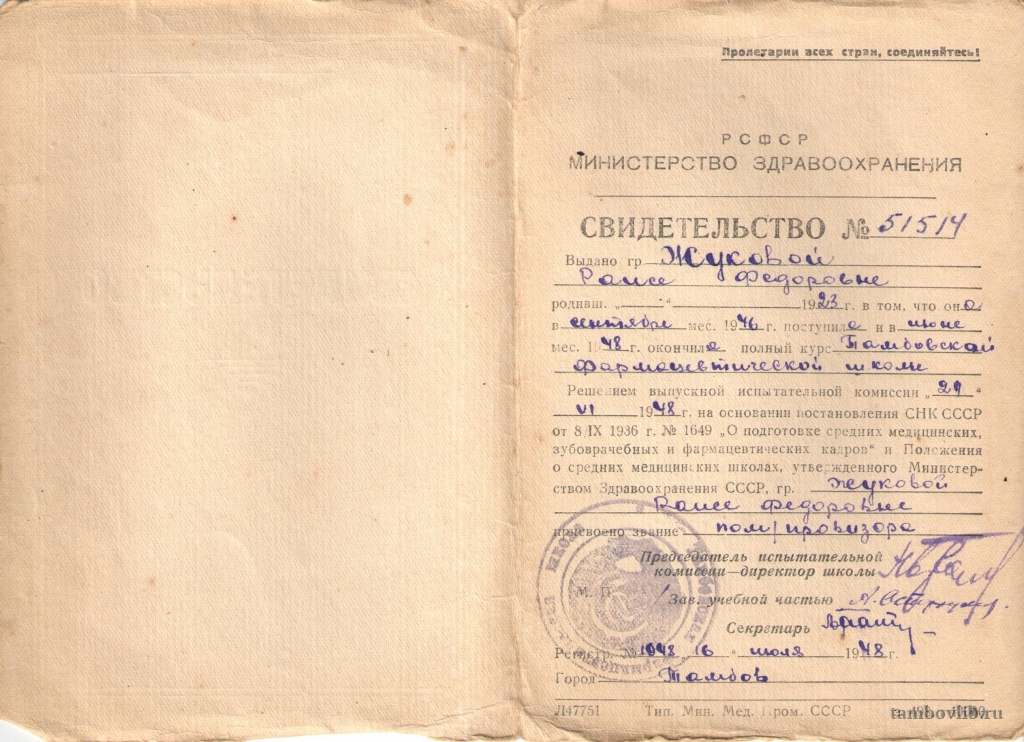 Пролетарии всех стран, соединяйтесь!
РСФСР
МИНИСТЕРСТВО ЗДРАВООХРАНЕНИЯ
СВИДЕТЕЛЬСТВО № 51514
Выдано гр. Жуковой
Раисе Федоровне
родивш. „ " 1923 г. в том, что она
в сентябре мес. 1946 г. поступила и в июне
мес. 1948 г. окончила полный курс Тамбовской
фармацевтической школы
Решением выпускной испытательной комиссии „29"
VI 1948 г. на основании постановления СНК СССР
от 8/IX 1936 г. № 1649 „О подготовке средних медицинских,
зубоврачебных и фармацевтических кадров" и Положения
о средних медицинских школах, утвержденного Министер-
ством Здравоохранения СССР, гр. Жуковой
Раисе Федоровне
присвоено звание пом/провизора
Председатель испытательной
комиссии—директор школы
М. П.
Зав. учебной частью
Секретарь
Регистр. № 1048 „16" июля 1948 г.
Город Тамбов
Л47751 Тип. Мин. Мед. Пром. СССР
tambovlib.ru